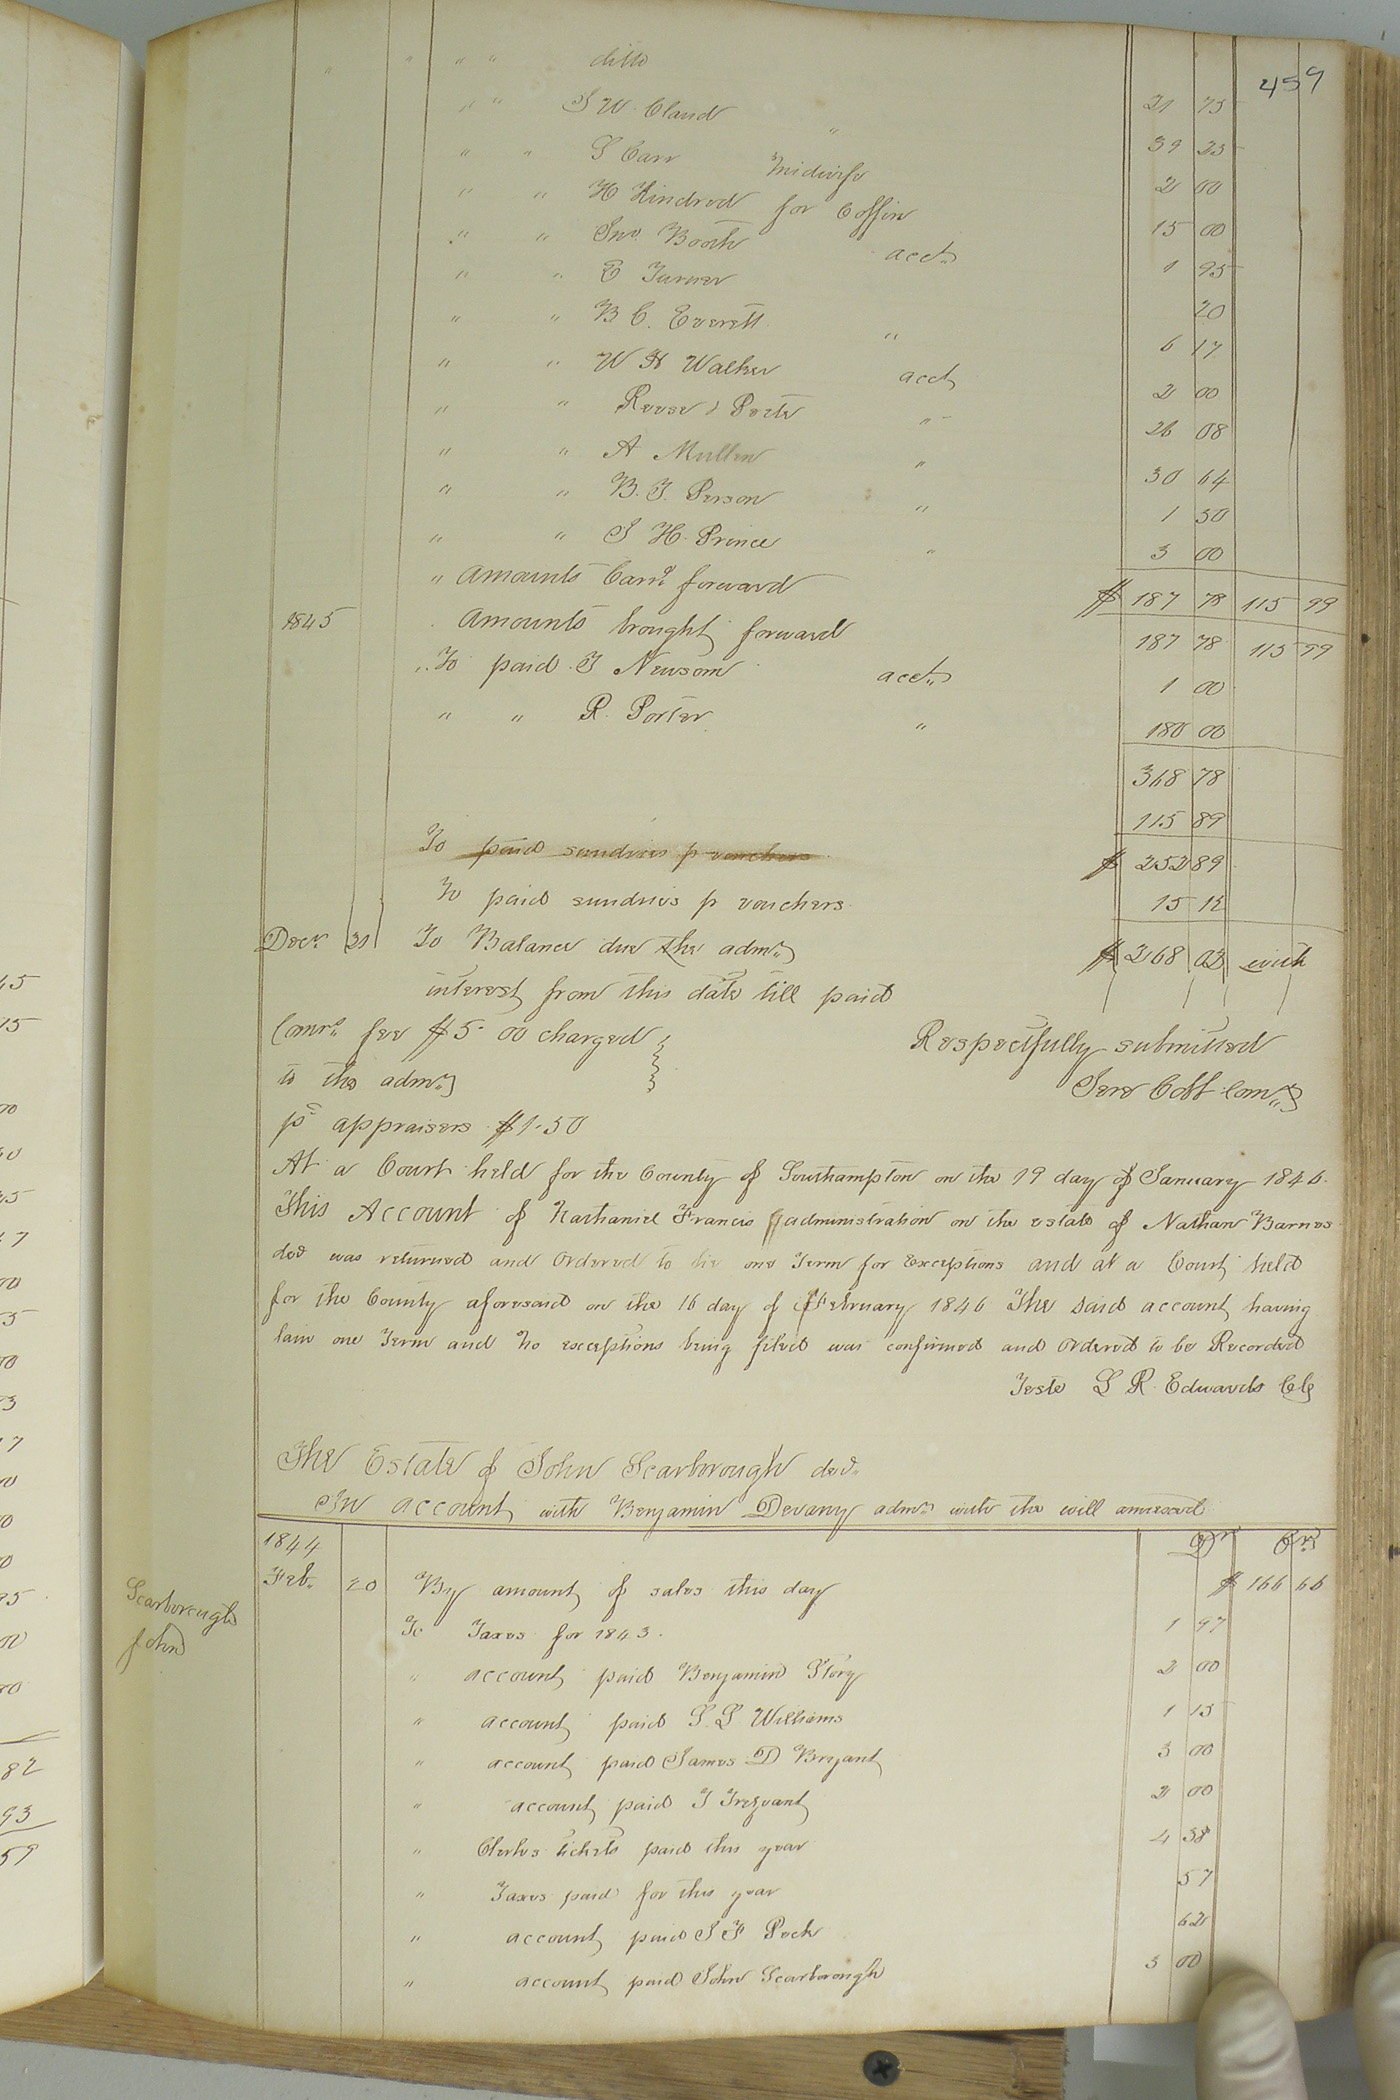 459
" " " " ditto 21 75
" " S W Claud " 39 25
" " S Carr Midwife 2 00
" " H Kindred for Coffin 15 00
" " Jno Booth acct. 1 95
" " E Turner 20
" " B C. Everett " 6 17
" " W H Walker acct 2 00
" " Reese & Porter " 26 08
" " A Mullen " 30 64
" " B. T. Person " 1 50
" " J H. Prince " 3 00
" Amounts Carrd. forward $ 187 78 115 99
1845 Amounts brought forward 187 78 115 99
" To paid J Newsom acct. 1 00
" " R. Porter " 180 00
368 78
115 89
To paid sundries p vouchers $ 252 89
To paid sundries p vouchers 15 12
Decr. 31 To Balance due the admr. $ 268 03 with
interest from this date till paid
Comrs. fee $5.00 charged
to the admr.
Respectfully submitted
Jere Cobb Comr.
pd appraisers $1.50
At a Court held for the County of Southampton on the 19 day of January 1846.
This Account of Nathaniel Francis administration on the estate of Nathan Barnes
decd was returned and Ordered to lie one Term for exceptions and at a Court held
for the County aforesaid on the 16 day of February 1846 The said account having
lain one Term and no exceptions being filed was confirmed and ordered to be Recorded
Teste L R. Edwards Clk
The Estate of John Scarborough decd.
In account with Benjamin Devany admr. with the will annexed
1844 Dr Cr
Feb. 20 By amount of sales this day $ 166 66
Scarborough
John
To Taxes for 1843. 1 97
" account paid Benjamin Story 2 00
" account paid S. L Williams 1 15
" account paid James D Bryant 3 00
" account paid J Trezvant 2 00
" Clerks tickets paid this year 4 38
" Taxes paid for this year 57
" account paid J F Peck 62
" account paid John Scarborough 3 00